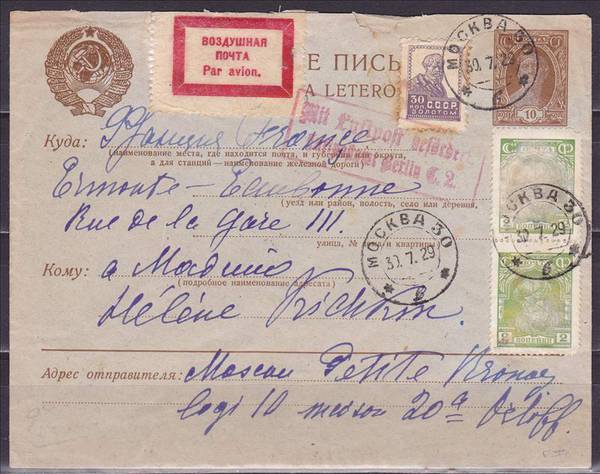 ВОЗДУШНАЯ
ПОЧТА
Par avion.
Е ПИСЬ
A LETERO
30 КОП. СССР ЗОЛОТОМ
МОСКВА 30
30.7.29
б
10
Mit Luftpost befördert
Berlin C. 2.
Куда: Франция France
(наименование места, где находится почта, и губернии или округа,
а для станций—наименование железной дороги)
Ermonte - Eaubonne
(уезд или район, волость, село или деревня,
Rue de la Gare 111.
улица, № и квартиры)
МОСКВА 30
30.7.29
б
МОСКВА 30
30.7.29
б
Кому: a Madame
(подробное наименование адресата)
Hélène
2 КОПЕЙКИ 2
Адрес отправителя: Moscou Petite
logi 10 20a Orloff.